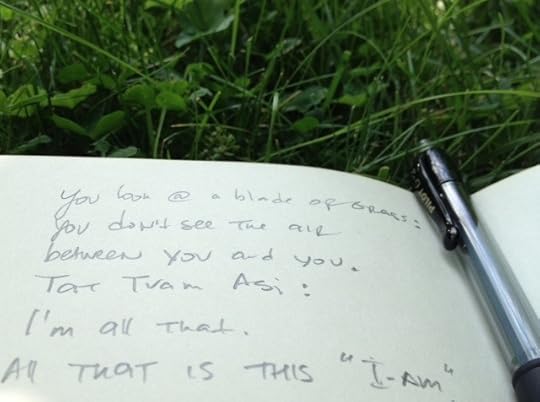 You look @ a blade of Grass:
You don't see the air
between you and you.
Tat Tvam Asi:
I'm all that.
All THAT IS THIS "I-AM"
PILOT G